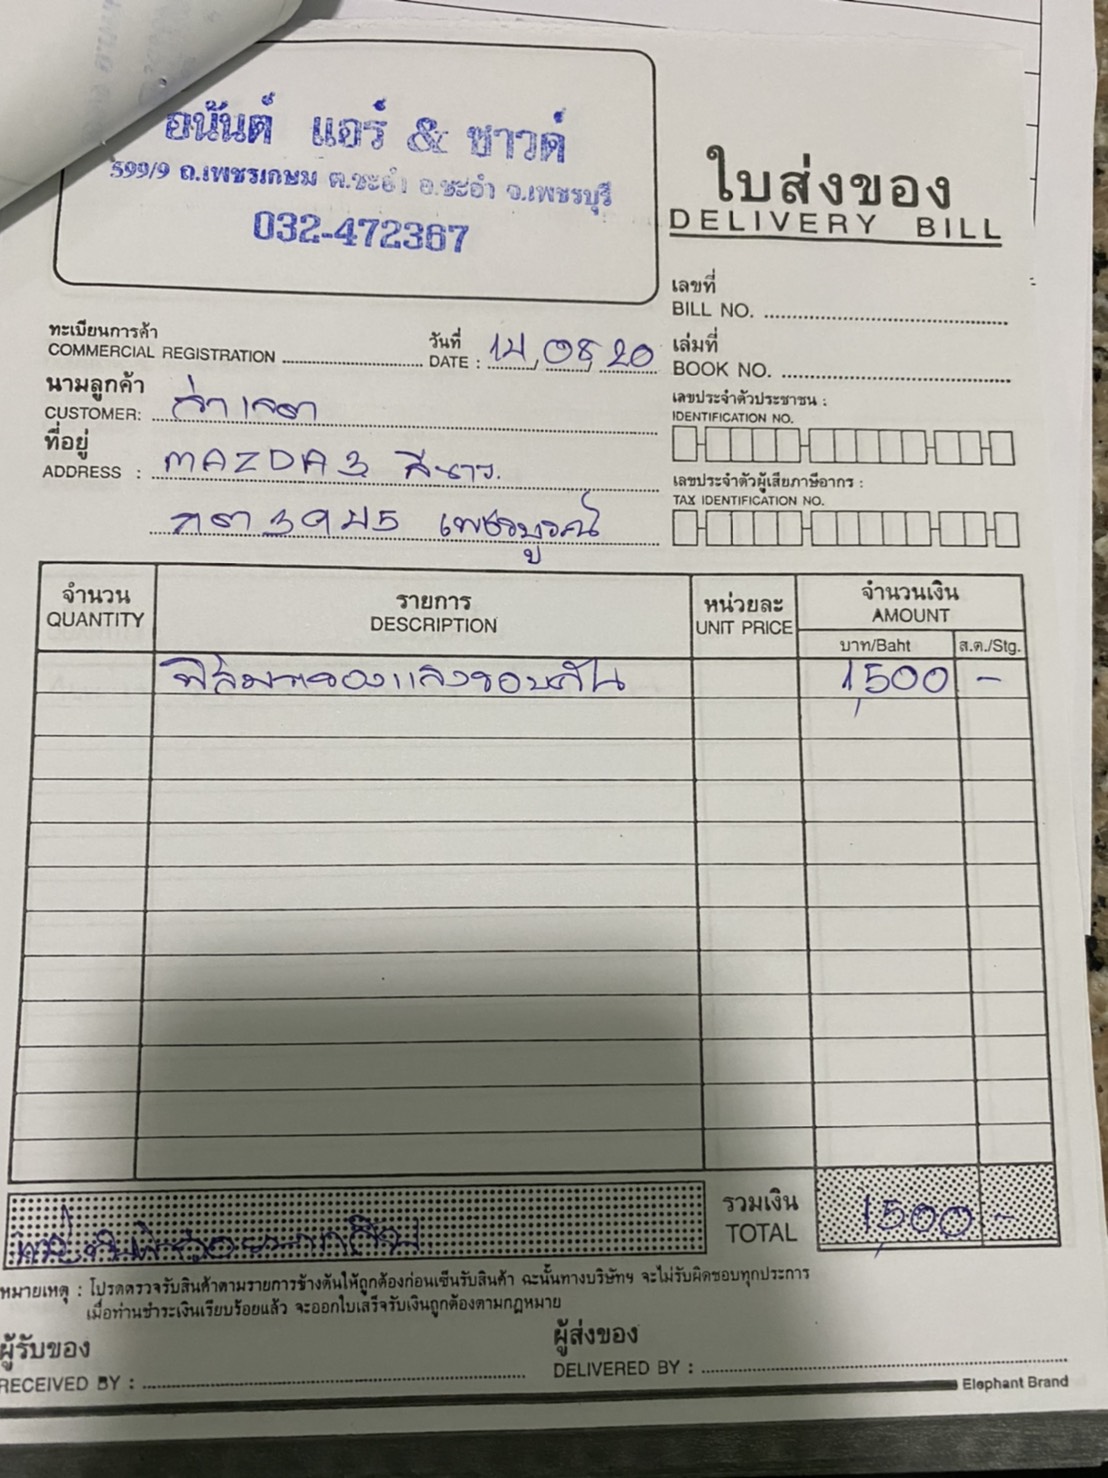 อนันต์ แอร์ & ซาวด์
599/9 ถ.เพชรเกษม ต.ชะอำ อ.ชะอำ จ.เพชรบุรี
032-472367
ใบส่งของ
DELIVERY BILL
เลขที่
BILL NO.
ทะเบียนการค้า
COMMERCIAL REGISTRATION
วันที่
DATE : 14, 08, 20
เล่มที่
BOOK NO.
นามลูกค้า
CUSTOMER:
เลขประจำตัวประชาชน :
IDENTIFICATION NO.
ที่อยู่
ADDRESS : MAZDA 3
เลขประจำตัวผู้เสียภาษีอากร :
TAX IDENTIFICATION NO.
เพชรบูรณ์
จำนวน
QUANTITY
รายการ
DESCRIPTION
หน่วยละ
UNIT PRICE
จำนวนเงิน
AMOUNT
บาท/Baht
ส.ต./Stg.
ฟิล์มกรองแสงรอบคัน 1,500 -
รวมเงิน
TOTAL
1,500 -
หมายเหตุ : โปรดตรวจรับสินค้าตามรายการข้างต้นให้ถูกต้องก่อนเซ็นรับสินค้า ฉะนั้นทางบริษัทฯ จะไม่รับผิดชอบทุกประการ
เมื่อท่านชำระเงินเรียบร้อยแล้ว จะออกใบเสร็จรับเงินถูกต้องตามกฎหมาย
ผู้รับของ
RECEIVED BY :
ผู้ส่งของ
DELIVERED BY :
Elephant Brand